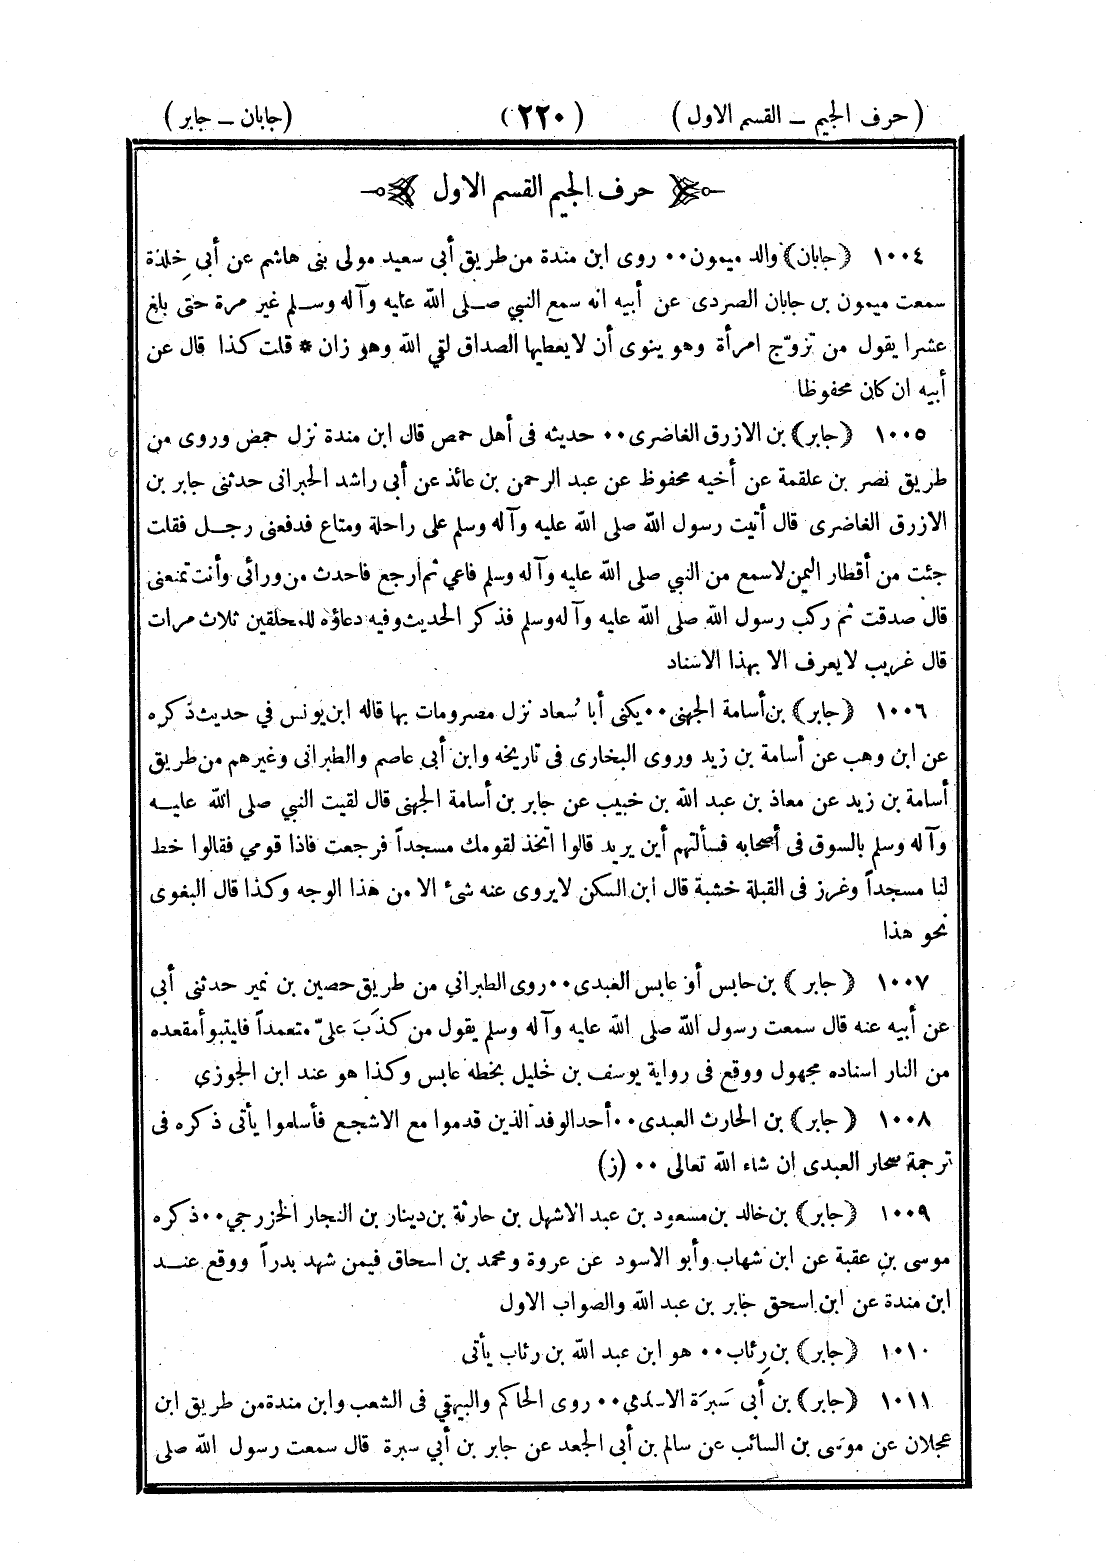 (حرف الجيم ــ القسم الاول) (٢٢٠) (جابان ــ جابر)
حرف الجيم القسم الاول
١٠٠٤ (جابان) والد ميمون٠٠ روى ابن مندة من طريق أبى سعيد مولى بنى هاشم عن أبى خلدة
سمعت ميمون بن جابان الصردى عن أبيه انه سمع النبي صلى الله عليه وآله وسلم غير مرة حتى بلغ
عشرا يقول من تزوّج امرأة وهو ينوى أن لايعطيها الصداق لقي الله وهو زان * قلت كذا قال عن
أبيه ان كان محفوظا
١٠٠٥ (جابر) بن الازرق الغاضرى٠٠ حديثه فى أهل حمص قال ابن مندة نزل حمص وروى من
طريق نصر بن علقمة عن أخيه محفوظ عن عبد الرحمن بن عائذ عن أبى راشد الحبرانى حدثنى جابر بن
الازرق الغاضرى قال أتيت رسول الله صلى الله عليه وآله وسلم على راحلة ومتاع فدفعنى رجل فقلت
جئت من أقطار اليمن لاسمع من النبي صلى الله عليه وآله وسلم فاعي ثم أرجع فاحدث من ورائى وأنت تمنعنى
قال صدقت ثم ركب رسول الله صلى الله عليه وآله وسلم فذكر الحديث وفيه دعاؤه للمحلقين ثلاث مرات
قال غريب لايعرف الا بهذا الاسناد
١٠٠٦ (جابر) بن أسامة الجهنى٠٠ يكنى أبا سُعاد نزل مصر ومات بها قاله ابن يونس في حديث ذكره
عن ابن وهب عن أسامة بن زيد وروى البخارى فى تاريخه وابن أبى عاصم والطبرانى وغيرهم من طريق
أسامة بن زيد عن معاذ بن عبد الله بن خبيب عن جابر بن أسامة الجهنى قال لقيت النبي صلى الله عليه
وآله وسلم بالسوق فى أصحابه فسألتهم أين يريد قالوا اتخذ لقومك مسجداً فرجعت فاذا قومي فقالوا خط
لنا مسجداً وغرز فى القبلة خشبة قال ابن السكن لايروى عنه شئ الا من هذا الوجه وكذا قال البغوى
نحو هذا
١٠٠٧ (جابر) بن حابس أو عابس العبدى٠٠ روى الطبراني من طريق حصين بن نمير حدثنى أبى
عن أبيه عنه قال سمعت رسول الله صلى الله عليه وآله وسلم يقول من كذَبَ علىّ متعمداً فليتبوأ مقعده
من النار اسناده مجهول ووقع فى رواية يوسف بن خليل بخطه عابس وكذا هو عند ابن الجوزي
١٠٠٨ (جابر) بن الحارث العبدى٠٠ أحد الوفد الذين قدموا مع الاشجع فأسلموا يأتى ذكره فى
ترجمة صحار العبدى ان شاء الله تعالى ٠٠ (ز)
١٠٠٩ (جابر) بن خالد بن مسعود بن عبد الاشهل بن حارثة بن دينار بن النجار الخزرجي٠٠ ذكره
موسى بن عقبة عن ابن شهاب وأبو الاسود عن عروة ومحمد بن اسحاق فيمن شهد بدراً ووقع عند
ابن مندة عن ابن اسحق جابر بن عبد الله والصواب الاول
١٠١٠ (جابر) بن رِئاب٠٠ هو ابن عبد الله بن رئاب يأتى
١٠١١ (جابر) بن أبى سَبرَة الاسلمي٠٠ روى الحاكم والبيهقي فى الشعب وابن مندة من طريق ابن
عجلان عن موسى بن السائب عن سالم بن أبى الجعد عن جابر بن أبي سبرة قال سمعت رسول الله صلى